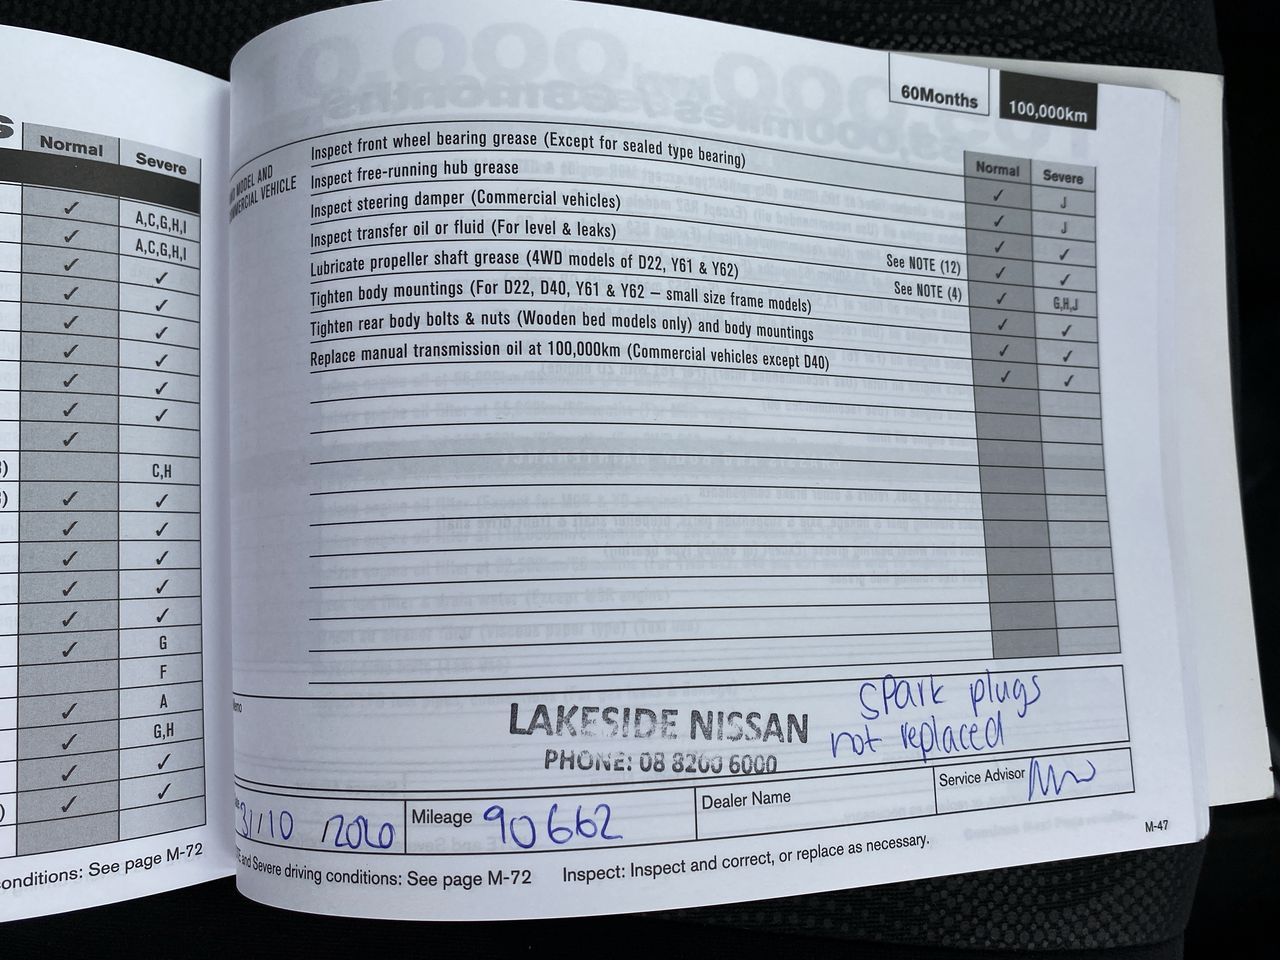 Normal
Severe
A,C,G,H,I
A,C,G,H,I
C,H
G
F
A
G,H
conditions: See page M-72
60Months
100,000km
Normal
Severe
MODEL AND
COMMERCIAL VEHICLE
Inspect front wheel bearing grease (Except for sealed type bearing)
✓ J
Inspect free-running hub grease
✓ J
Inspect steering damper (Commercial vehicles)
✓ ✓
Inspect transfer oil or fluid (For level & leaks) See NOTE (12)
✓ ✓
Lubricate propeller shaft grease (4WD models of D22, Y61 & Y62) See NOTE (4)
✓ G,H,J
Tighten body mountings (For D22, D40, Y61 & Y62 – small size frame models)
✓ ✓
Tighten rear body bolts & nuts (Wooden bed models only) and body mountings
✓ ✓
Replace manual transmission oil at 100,000km (Commercial vehicles except D40)
✓ ✓
LAKESIDE NISSAN
PHONE: 08 8200 6000
spark plugs
not replaced
31/10/2020
Mileage 90662
Dealer Name
Service Advisor
and Severe driving conditions: See page M-72 Inspect: Inspect and correct, or replace as necessary.
M-47